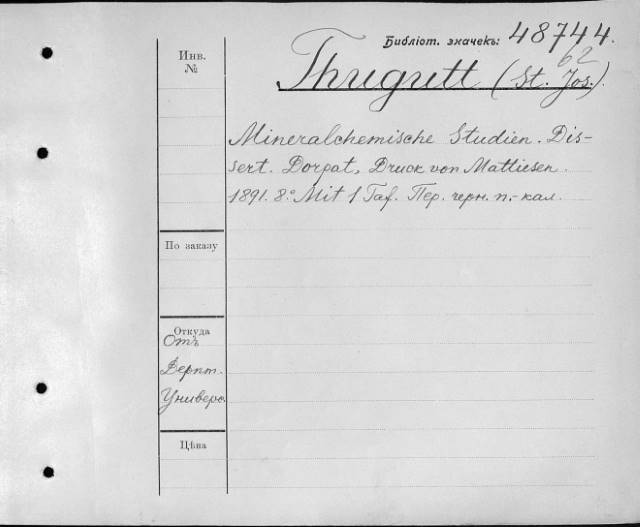 Библіот. значекъ: 48744.
62
Инв.
№
Thugutt (St. Jos.)
Mineralchemische Studien. Dis-
sert. Dorpat, Druck von Mattiesen.
1891. 8.° Mit 1 Taf. Пер. черн. п.-кал.
По заказу
Откуда
Отъ
Дерпт.
Универс.
Цѣна